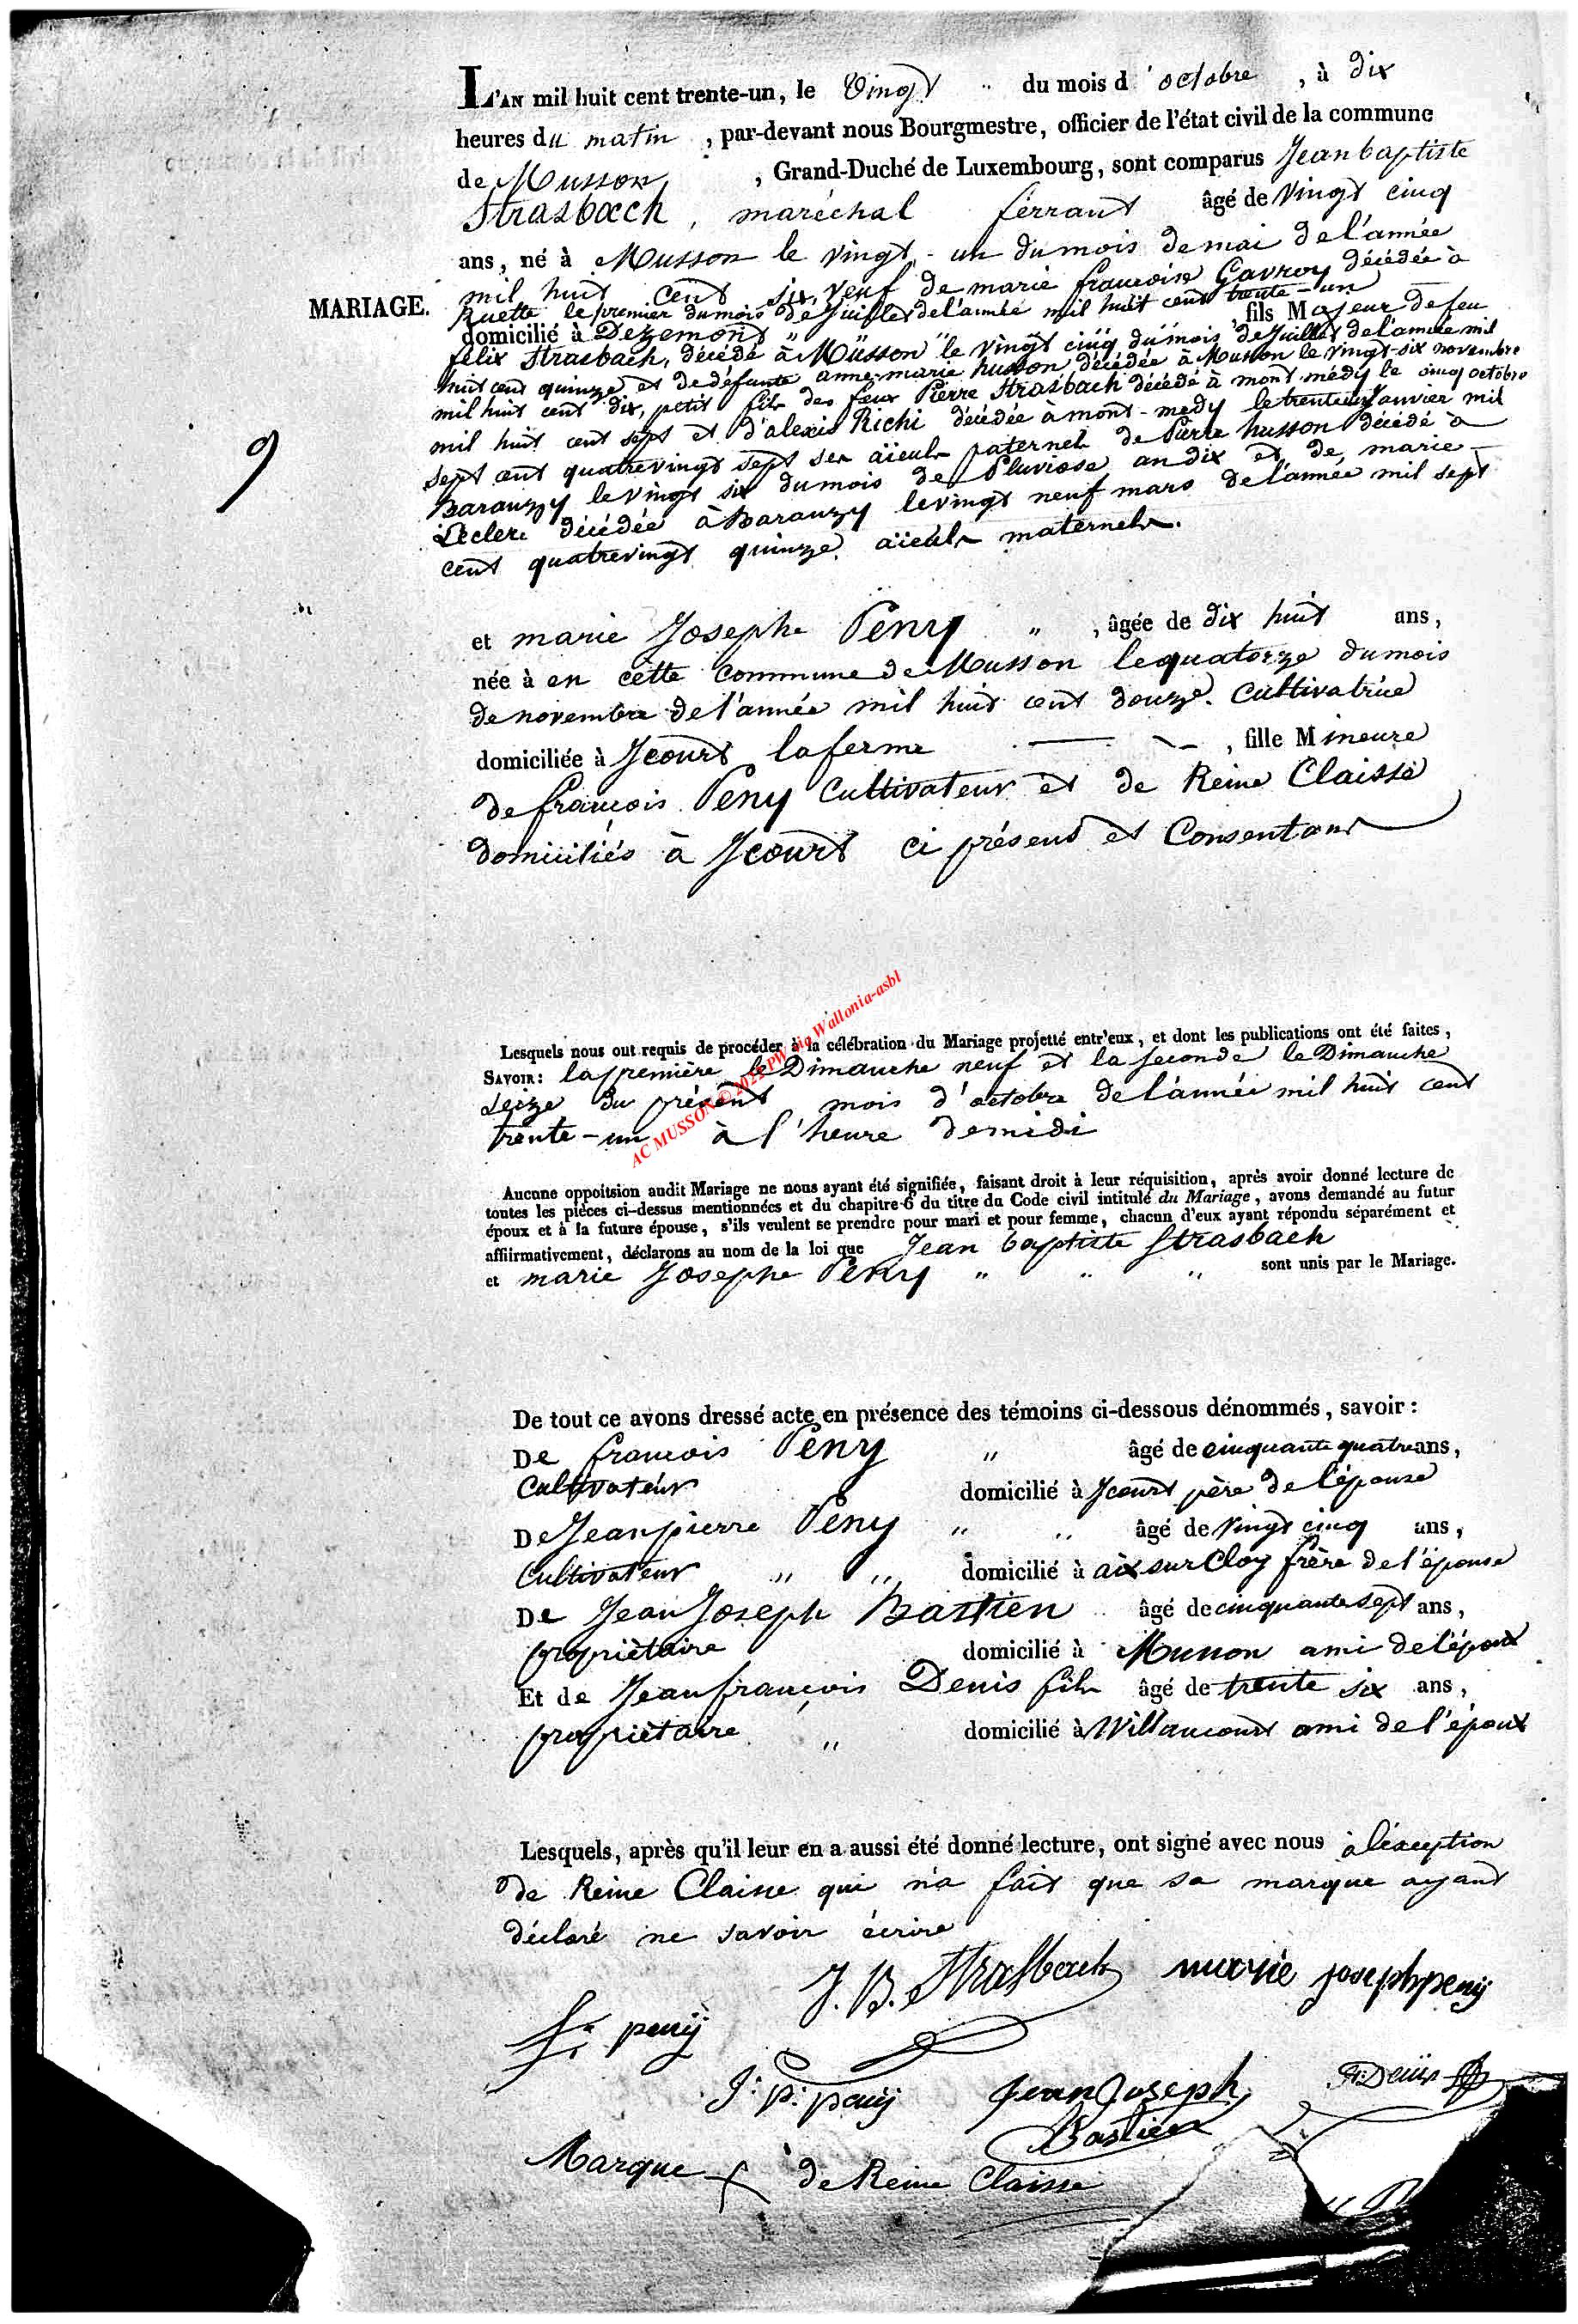 L'AN mil huit cent trente-un, le Vingt " du mois d'octobre, à dix
heures du matin, par-devant nous Bourgmestre, officier de l'état civil de la commune
de Musson, Grand-Duché de Luxembourg, sont comparus Jean baptiste
Strasbach, maréchal férrant âgé de Vingt cinq
ans, né à Musson le vingt-un du mois de mai de l'année
mil huit cent six, veuf de marie francoise Gavroy décédée à
MARIAGE.
Ruette le premier du mois de Juillet de l'année mil huit cent trente-un
domicilié à Dezemont " " , fils Majeur de feu
félix Strasbach, décédé à Musson le vingt cinq du mois de Juillet de l'année mil
huit cent quinze et de défunte anne-marie husson décédée à Musson le vingt-six novembre
mil huit cent dix, petit fils des feux Pierre Strasbach décédé à mont-médy le cinq octobre
mil huit cent sept et d'alexis Richi décédée à mont-medy le trente un Janvier mil
9
sept cent quatrevingt sept ses aïeuls paternels de Pierre husson décédé à
Baranzy le vingt six du mois de Pluviose an dix et de marie
Leclere décédée à Baranzy le vingt neuf mars de l'année mil sept
cent quatrevingt quinze aïeuls maternels.
et marie Josephe Peny " , âgée de dix huit ans,
née à en cette commune de Musson le quatorze du mois
de novembre de l'année mil huit cent douze. Cultivatrice
domiciliée à Jcourt la ferme , fille Mineure
de francois Peny Cultivateur et de Reine Claisse
domiciliés à Jcourt ci présent et Consentant
Lesquels nous ont requis de procéder à la célébration du Mariage projetté entr'eux, et dont les publications ont été faites,
SAVOIR: la première le Dimanche neuf et la seconde le Dimanche
seize du présent mois d'octobre de l'année mil huit cent
trente-un à l'heure de midi
AC MUSSON © 2022 PW via Wallonia-asbl
Aucune oppoitsion audit Mariage ne nous ayant été signifiée, faisant droit à leur réquisition, après avoir donné lecture de
toutes les pièces ci-dessus mentionnées et du chapitre 6 du titre du Code civil intitulé du Mariage, avons demandé au futur
époux et à la future épouse, s'ils veulent se prendre pour mari et pour femme, chacun d'eux ayant répondu séparément et
affiirmativement, déclarons au nom de la loi que Jean baptiste Strasbach
et marie Josephe Peny " " " sont unis par le Mariage.
De tout ce avons dressé acte en présence des témoins ci-dessous dénommés, savoir:
De francois Peny " âgé de cinquante quatre ans,
Cultivateur domicilié à Jcourt père de l'épouse
De Jean pierre Peny " " âgé de vingt cinq ans,
Cultivateur " " domicilié à aix sur Cloy frère de l'épouse
De Jean Joseph Bastien âgé de cinquante sept ans,
propriètaire domicilié à Musson ami de l'époux
Et de Jean francois Denis fils âgé de trente six ans,
propriètaire " domicilié à Willancourt ami de l'époux
Lesquels, après qu'il leur en a aussi été donné lecture, ont signé avec nous à l'éxception
de Reine Claisse qui n'a fait que sa marque ayant
déclaré ne savoir écrire
J. B. Strasbach marie joseph peny
fr peny
J: p: peny Jean Joseph Bastien Denis
Marque de Reine Claisse